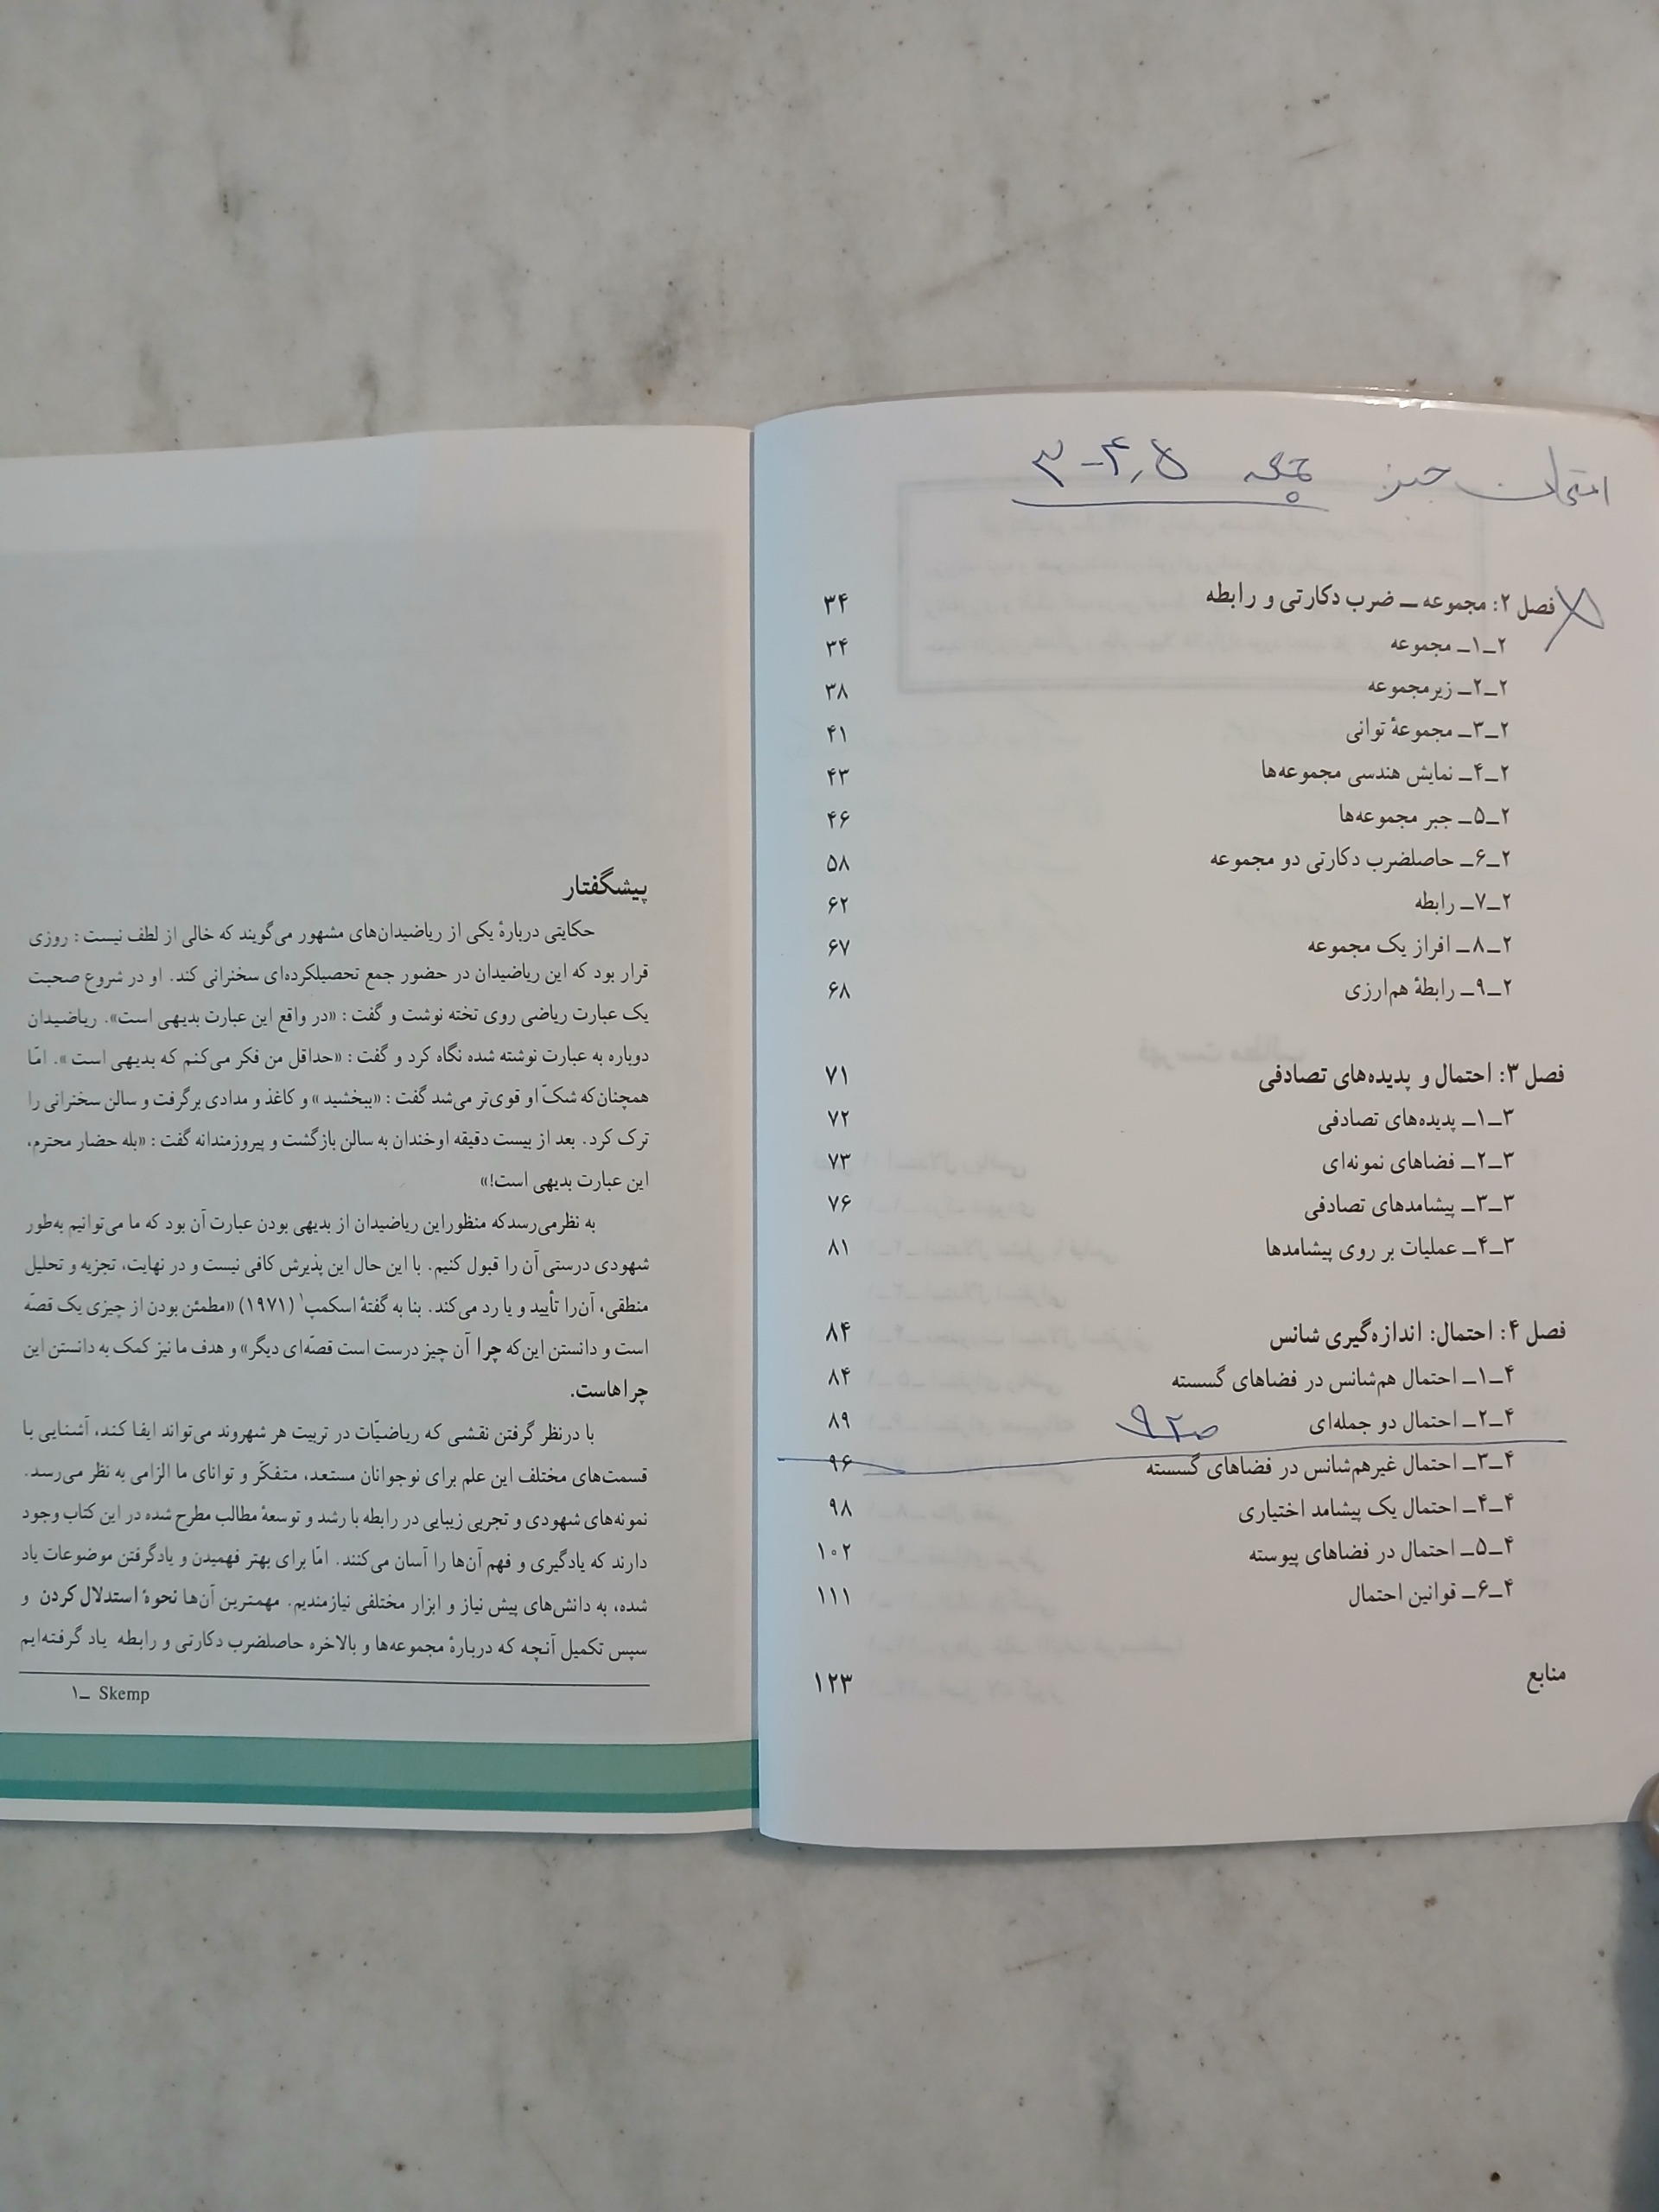 امتحان جبر جمعه ۳-۴٫۵
فصل ۲: مجموعه ــ ضرب دکارتی و رابطه ۳۴
۲ــ۱ــ مجموعه ۳۴
۲ــ۲ــ زیرمجموعه ۳۸
۲ــ۳ــ مجموعهٔ توانی ۴۱
۲ــ۴ــ نمایش هندسی مجموعه‌ها ۴۳
۲ــ۵ــ جبر مجموعه‌ها ۴۶
۲ــ۶ــ حاصلضرب دکارتی دو مجموعه ۵۸
۲ــ۷ــ رابطه ۶۲
۲ــ۸ــ افراز یک مجموعه ۶۷
۲ــ۹ــ رابطهٔ هم‌ارزی ۶۸
فصل ۳: احتمال و پدیده‌های تصادفی ۷۱
۳ــ۱ــ پدیده‌های تصادفی ۷۲
۳ــ۲ــ فضاهای نمونه‌ای ۷۳
۳ــ۳ــ پیشامدهای تصادفی ۷۶
۳ــ۴ــ عملیات بر روی پیشامدها ۸۱
فصل ۴: احتمال: اندازه‌گیری شانس ۸۴
۴ــ۱ــ احتمال هم‌شانس در فضاهای گسسته ۸۴
۴ــ۲ــ احتمال دو جمله‌ای ص۹۲ ۸۹
۴ــ۳ــ احتمال غیرهم‌شانس در فضاهای گسسته ۹۶
۴ــ۴ــ احتمال یک پیشامد اختیاری ۹۸
۴ــ۵ــ احتمال در فضاهای پیوسته ۱۰۲
۴ــ۶ــ قوانین احتمال ۱۱۱
منابع ۱۲۳
پیشگفتار
حکایتی دربارهٔ یکی از ریاضیدان‌های مشهور می‌گویند که خالی از لطف نیست : روزی
قرار بود که این ریاضیدان در حضور جمع تحصیلکرده‌ای سخنرانی کند. او در شروع صحبت
یک عبارت ریاضی روی تخته نوشت و گفت : «در واقع این عبارت بدیهی است». ریاضیدان
دوباره به عبارت نوشته شده نگاه کرد و گفت : «حداقل من فکر می‌کنم که بدیهی است ». امّا
همچنان‌که شکّ او قوی‌تر می‌شد گفت : «ببخشید » و کاغذ و مدادی برگرفت و سالن سخنرانی را
ترک کرد. بعد از بیست دقیقه اوخندان به سالن بازگشت و پیروزمندانه گفت : «بله حضار محترم،
این عبارت بدیهی است!»
به نظرمی‌رسدکه منظوراین ریاضیدان از بدیهی بودن عبارت آن بود که ما می‌توانیم به‌طور
شهودی درستی آن را قبول کنیم. با این حال این پذیرش کافی نیست و در نهایت، تجزیه و تحلیل
منطقی، آن‌را تأیید و یا رد می‌کند. بنا به گفتهٔ اسکمپ۱ (۱۹۷۱) «مطمئن بودن از چیزی یک قصّه
است و دانستن این‌که چرا آن چیز درست است قصّه‌ای دیگر» و هدف ما نیز کمک به دانستن این
چراهاست.
با درنظر گرفتن نقشی که ریاضیّات در تربیت هر شهروند می‌تواند ایفا کند، آشنایی با
قسمت‌های مختلف این علم برای نوجوانان مستعد، متفکّر و توانای ما الزامی به نظر می‌رسد.
نمونه‌های شهودی و تجربی زیبایی در رابطه با رشد و توسعهٔ مطالب مطرح شده در این کتاب وجود
دارند که یادگیری و فهم آن‌ها را آسان می‌کنند. امّا برای بهتر فهمیدن و یادگرفتن موضوعات یاد
شده، به دانش‌های پیش نیاز و ابزار مختلفی نیازمندیم. مهمترین آن‌ها نحوهٔ استدلال کردن و
سپس تکمیل آنچه که دربارهٔ مجموعه‌ها و بالاخره حاصلضرب دکارتی و رابطه یاد گرفته‌ایم
۱ــ Skemp